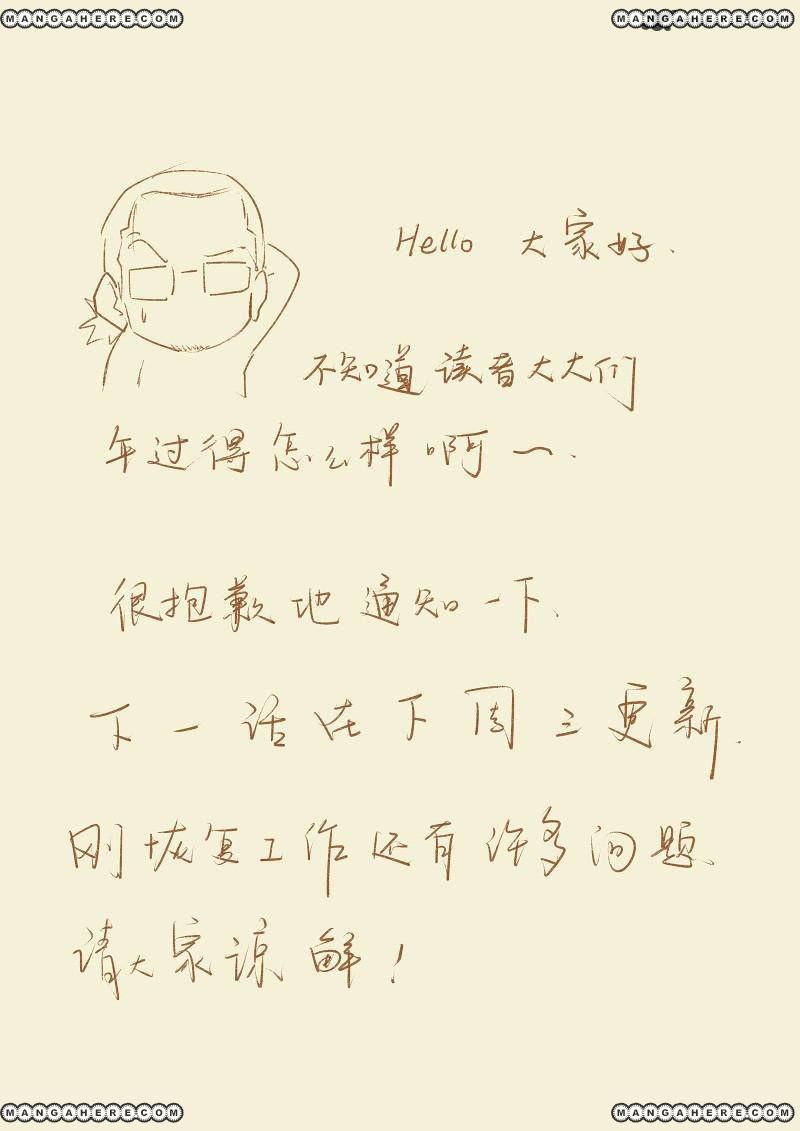 MANGAHERE.COM MANGAHERE.COM
Hello 大家好.
不知道读者大大们
年过得怎么样啊~.
很抱歉地通知一下.
下一话在下周三更新.
刚恢复工作还有许多问题.
请大家谅鲜!
MANGAHERE.COM MANGAHERE.COM